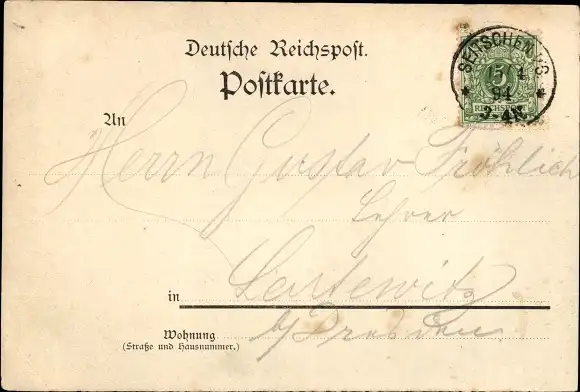 Deutsche Reichspost.
Postkarte.
SEITSCHEN i/S
15 4
94
3-4N.
5
REICHSPOST
An
Herrn Gustav Fröhlich
Lehrer
in Leutewitz
b/Dresden
Wohnung
(Straße und Hausnummer.)